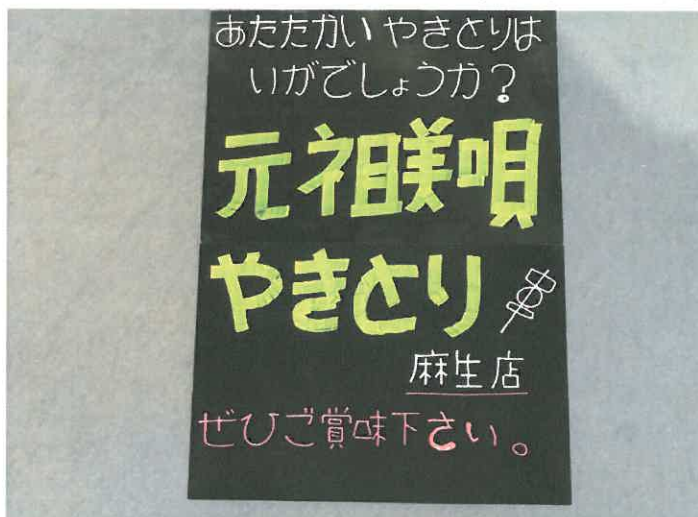 あたたかい やきとりは
いがでしょうか?
元祖美唄
やきとり
麻生店
ぜひご賞味下さい。